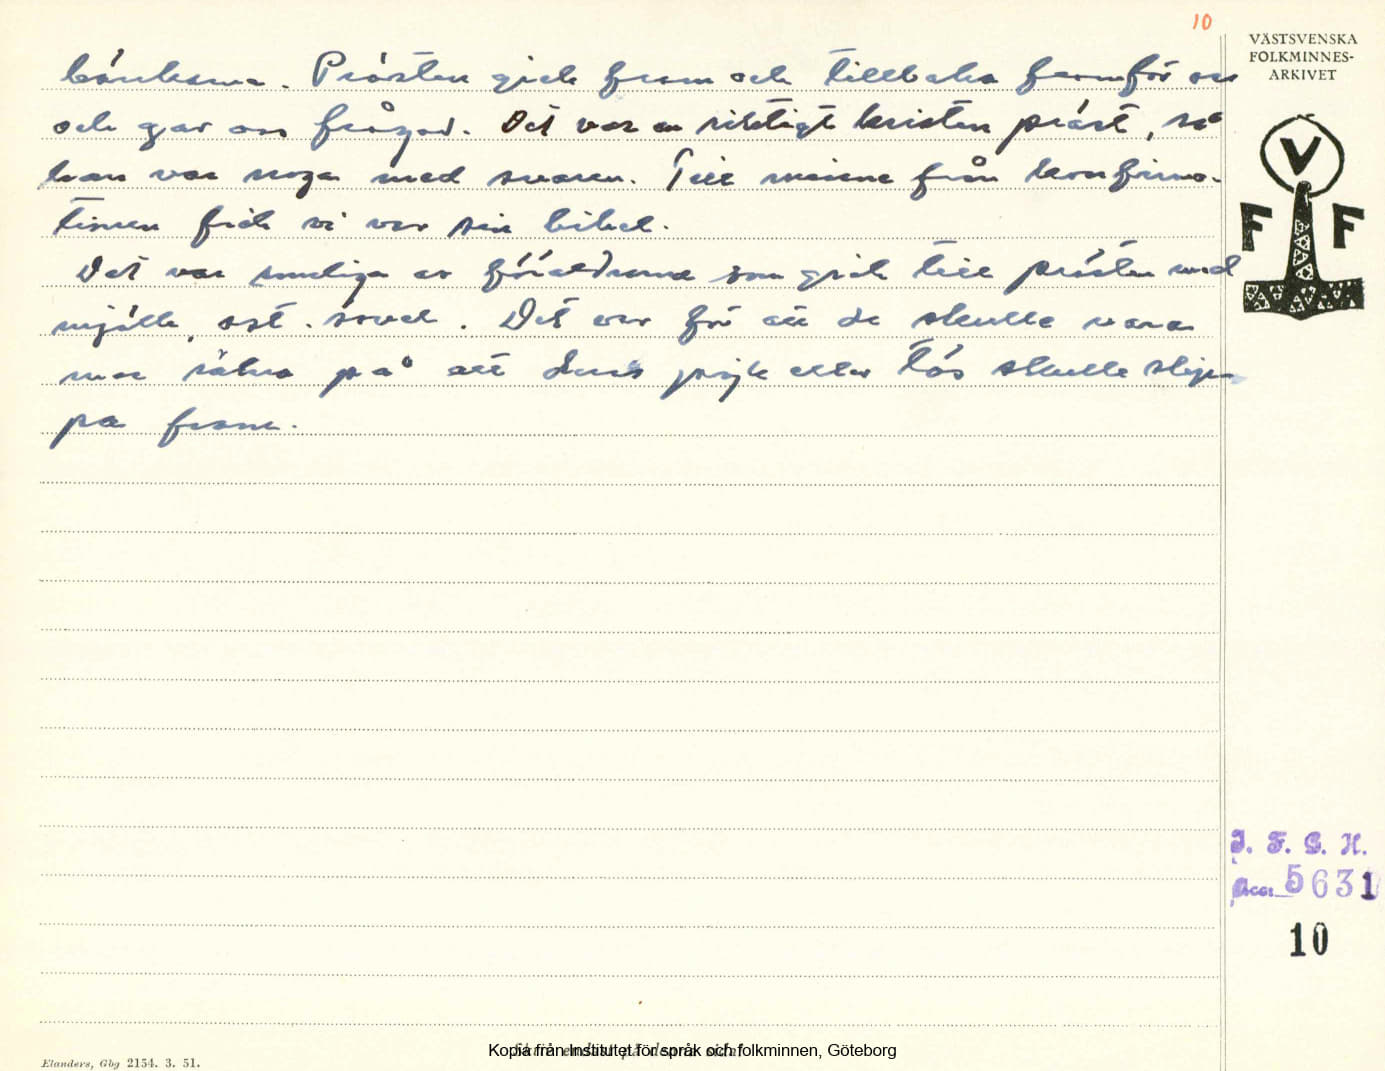 10
VÄSTSVENSKA
FOLKMINNES-
ARKIVET
bänkarna. Prästen gick fram och tillbaka framför oss
och gav oss frågor. Det var en riktigt kristen präst, så
han var noga med svaren. Till minne från konfirma-
tionen fick vi var sin bibel.
Det var somliga av föräldrarna som gick till prästen med
mjölk, ost, sovel. Det var för att de skulle vara
mer säkra på att deras pojk eller tös skulle slippa
fram.
V
F F
I. F. G. H.
Acc. 5631
10
Kopia från Institutet för språk och folkminnen, Göteborg
Elanders, Gbg 2154. 3. 51.